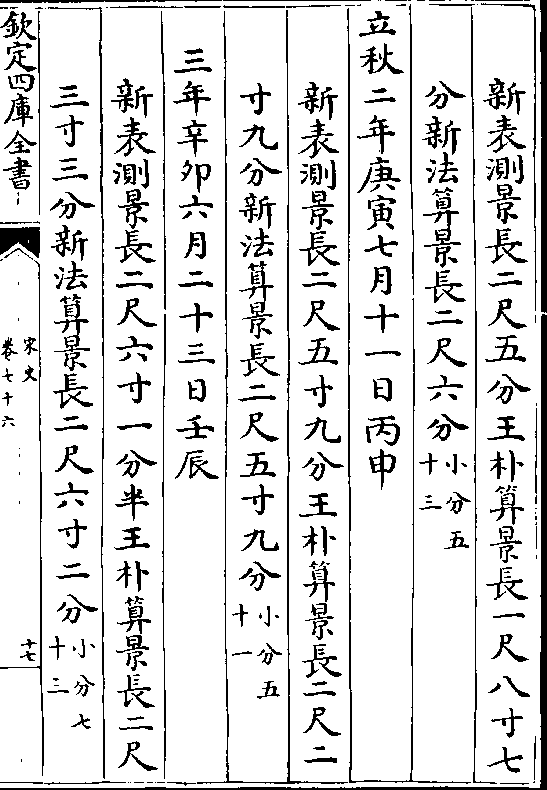 新表測景長二尺五分王朴算景長一尺八寸七
分新法算景長二尺六分小分五十三
立秋二年庚寅七月十一日丙申
新表測景長二尺五寸九分王朴算景長二尺二
寸九分新法算景長二尺五寸九分小分五十一
三年辛卯六月二十三日壬辰
新表測景長二尺六寸一分半王朴算景長二尺
三寸三分新法算景長二尺六寸二分小分七十三
欽定四庫全書
宋史
卷七十六
十七